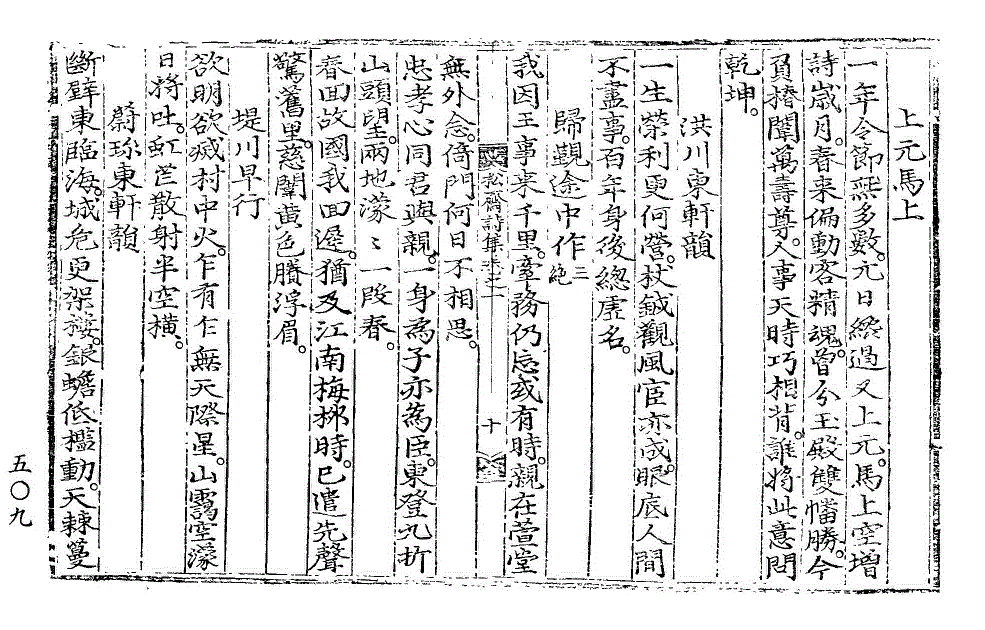 上元馬上
一年令節無多數。元日纔過又上元。馬上空增
詩歲月。春來偏動客精魂。曾分玉殿雙幡勝。今
負椿闈萬壽尊。人事天時巧相背。誰將此意問
乾坤。
洪川東軒韻
一生榮利更何營。杖鉞觀風宦亦成。眼底人間
不盡事。百年身後總虛名。
歸覲途中作 三絶
我因王事來千里。牽務仍忘或有時。親在萱堂
松齋詩集卷之一 十
無外念。倚門何日不相思。
忠孝心同君與親。一身爲子亦爲臣。東登九折
山頭望。兩地濛〻一段春。
春回故國我回遲。猶及江南梅柳時。已遣先聲
驚舊里。慈闈黃色賸浮眉。
堤川早行
欲明欲滅村中火。乍有乍無天際星。山靄空濛
日將吐。虹芒散射半空橫。
蔚珍東軒韻
斷壁東臨海。城危更架樓。銀蟾低檻動。天棘蔓
五〇九